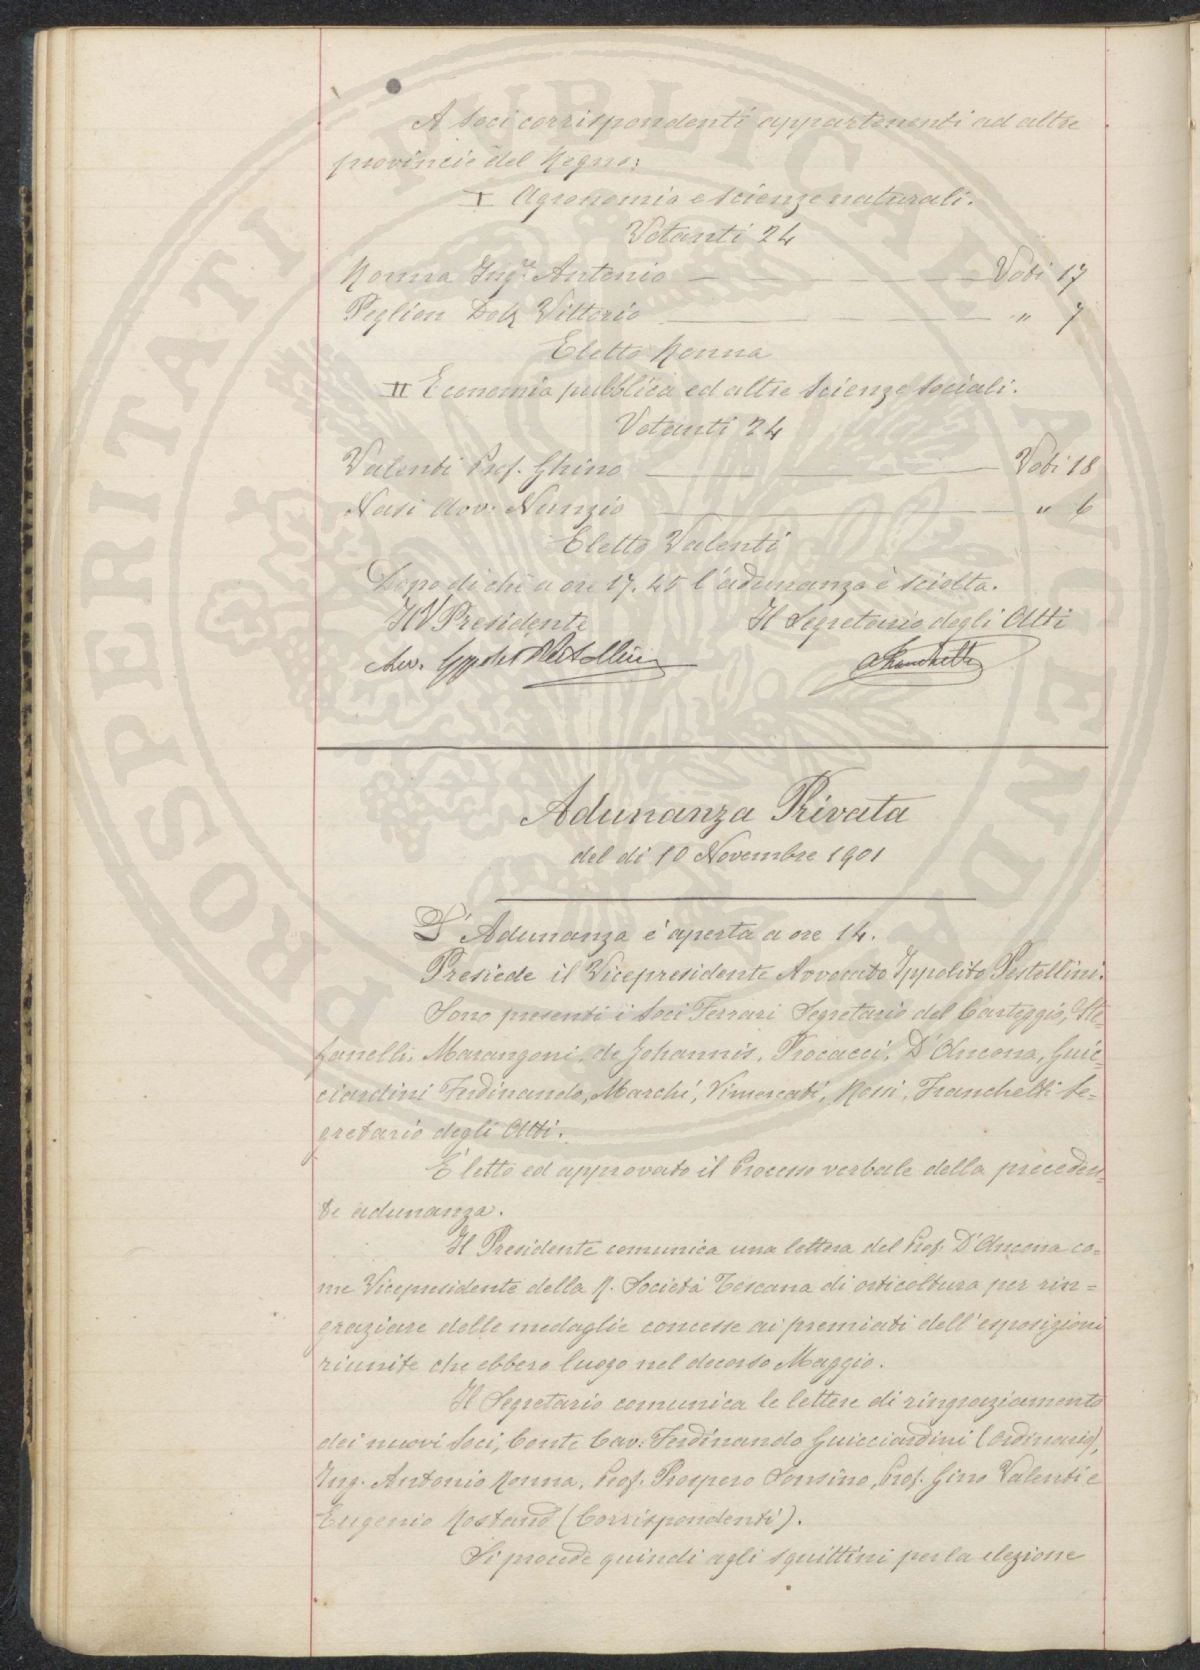 A Soci corrispondenti appartenenti ad altre
provincie del Regno:
I Agronomia e scienze naturali.
Votanti 24
Nonna Ing.r Antonio — Voti 17
Peglion Dott. Vittorio — " 7
Eletto Nonna
II Economia pubblica ed altre Scienze Sociali.
Votanti 24
Valenti Prof. Ghino — Voti 18
Nasi Avv. Nunzio — " 6
Eletto Valenti
Dopo di chè a ore 17.45 l'adunanza è sciolta.
Il V Presidente Il Segretario degli Atti
Avv. Ippolito Pestellini AFranchetti
Adunanza Privata
del dì 10 Novembre 1901
L'Adunanza è aperta a ore 14.
Presiede il Vicepresidente Avvocato Ippolito Pestellini.
Sono presenti i Soci Ferrari Segretario del Carteggio, Ste=
fanelli, Marangoni, de Johannis, Procacci, D'Ancona, Guic=
ciardini Ferdinando, Marchi, Vimercati, Rossi, Franchetti Se=
gretario degli Atti.
È letto ed approvato il Processo verbale della preceden=
te adunanza.
Il Presidente comunica una lettera del Prof. D'Ancona co=
me Vicepresidente della R. Società Toscana di orticoltura per rin=
graziare delle medaglie concesse ai premiati dell'esposizioni
riunite che ebbero luogo nel decorso Maggio.
Il Segretario comunica le lettere di ringraziamento
dei nuovi Soci, Conte Cav: Ferdinando Guicciardini (Ordinario),
Ing. Antonio Nonna, Prof. Prospero Sonsino, Prof. Gino Valenti e
Eugenio Rostand (Corrispondenti).
Si procede quindi agli squittini per la elezione
PROSPERITATI PUBLICAE AUGENDAE